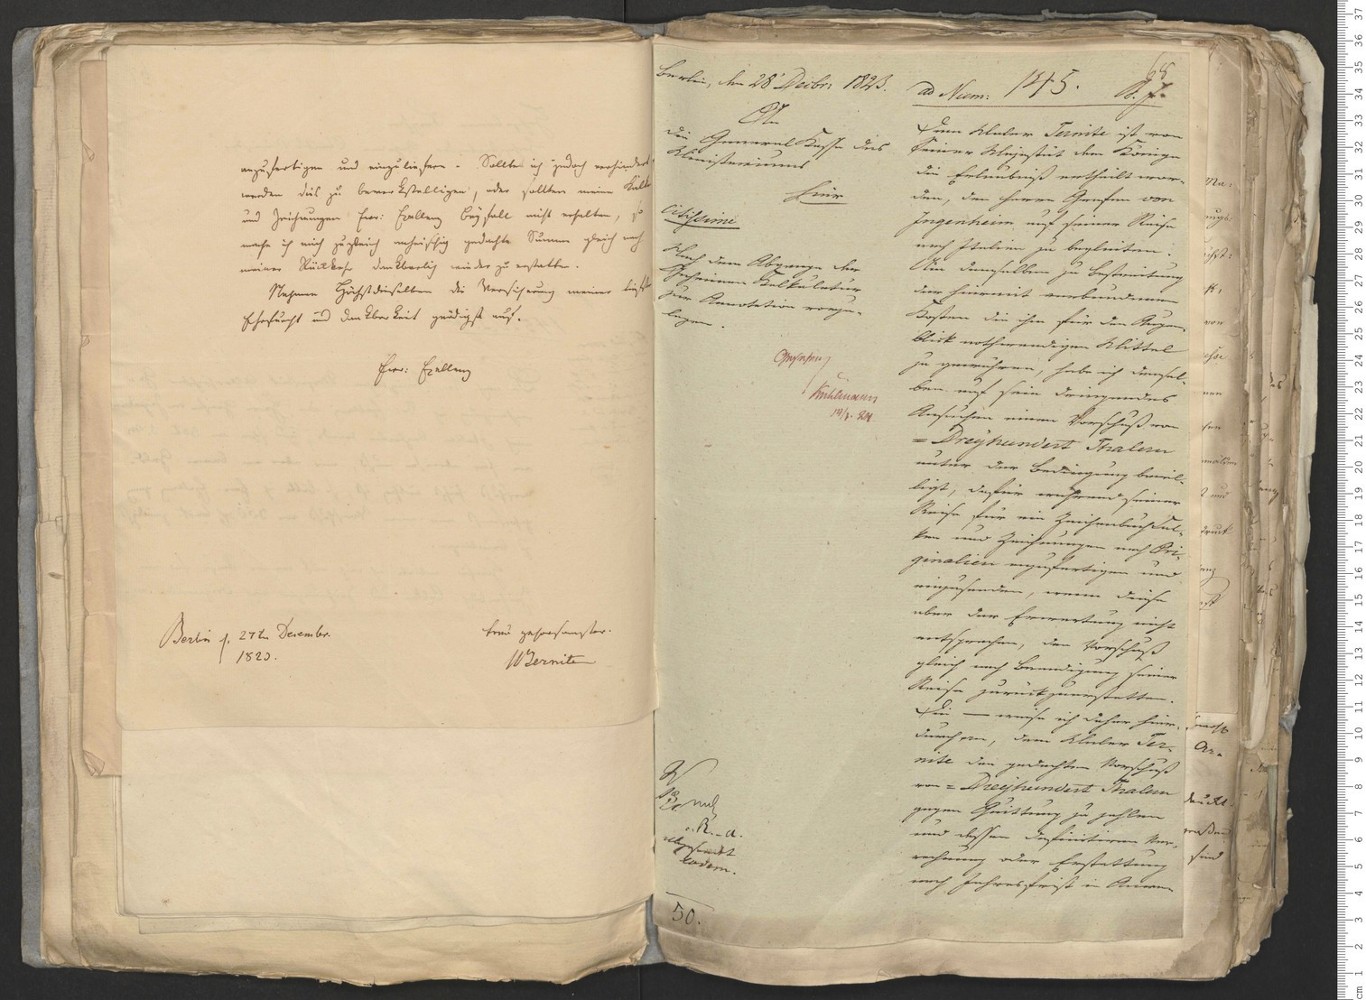 anzufertigen und einzuliefern. Sollte ich jedoch verhindert
werden dies zu bewerkstelligen, oder sollten meine
und Zeichnungen Ewr: Excellenz Beyfall nicht erhalten, so
mache ich mich zugleich anheischig gedachte Summe gleich nach
meiner Rückkehr dankbarlich wieder zu erstatten.
Nehmen Höchstdieselben die Versicherung meiner
Ehrfurcht und Dankbarkeit gnädigst auf.
Ewr: Excellenz
Berlin d. 27te Decembr.
1823.
treu gehorsamster
W Ternite
Berlin, den 28 Decbr: 1823.
An
die General Kasse des
Ministeriums
hier
Citissime
Nach dem Abgange der
Geheimen Kalkulatur
zur Annotation vorzu-
legen.
Gesehen
Kuhlmann
50.
65
ad Num: 1845.
Dem Maler Ternite ist von
Seiner Majestät dem Könige
die Erlaubniß ertheilt wor-
den, den Herrn Grafen von
Ingenheim auf seiner Reise
nach Italien zu begleiten.
Um demselben zu Bestreitung
der hiermit verbundenen
Kosten die ihm für den Augen-
blick nothwendigen Mittel
zu gewähren, habe ich demsel-
ben auf sein dringendes
Ansuchen einen Vorschuß von
= Dreyhundert Thalern
unter der Bedingung bewil-
ligt, dafür während seiner
Reise für ein Zeichenbuch
ken und Zeichnungen nach Ori-
ginalien anzufertigen und
einzusenden, wenn diese
aber der Erwartung nicht
entsprechen, den Vorschuß
gleich nach Beendigung seiner
Reise zurückzuerstatten.
Die — weise ich daher hier-
durch an, dem Maler Ter-
nite den gedachten Vorschuß
von = Dreyhundert Thalern
gegen Quittung zu zahlen
und dessen definitive Ver-
rechnung oder Erstattung
nach Jahresfrist in